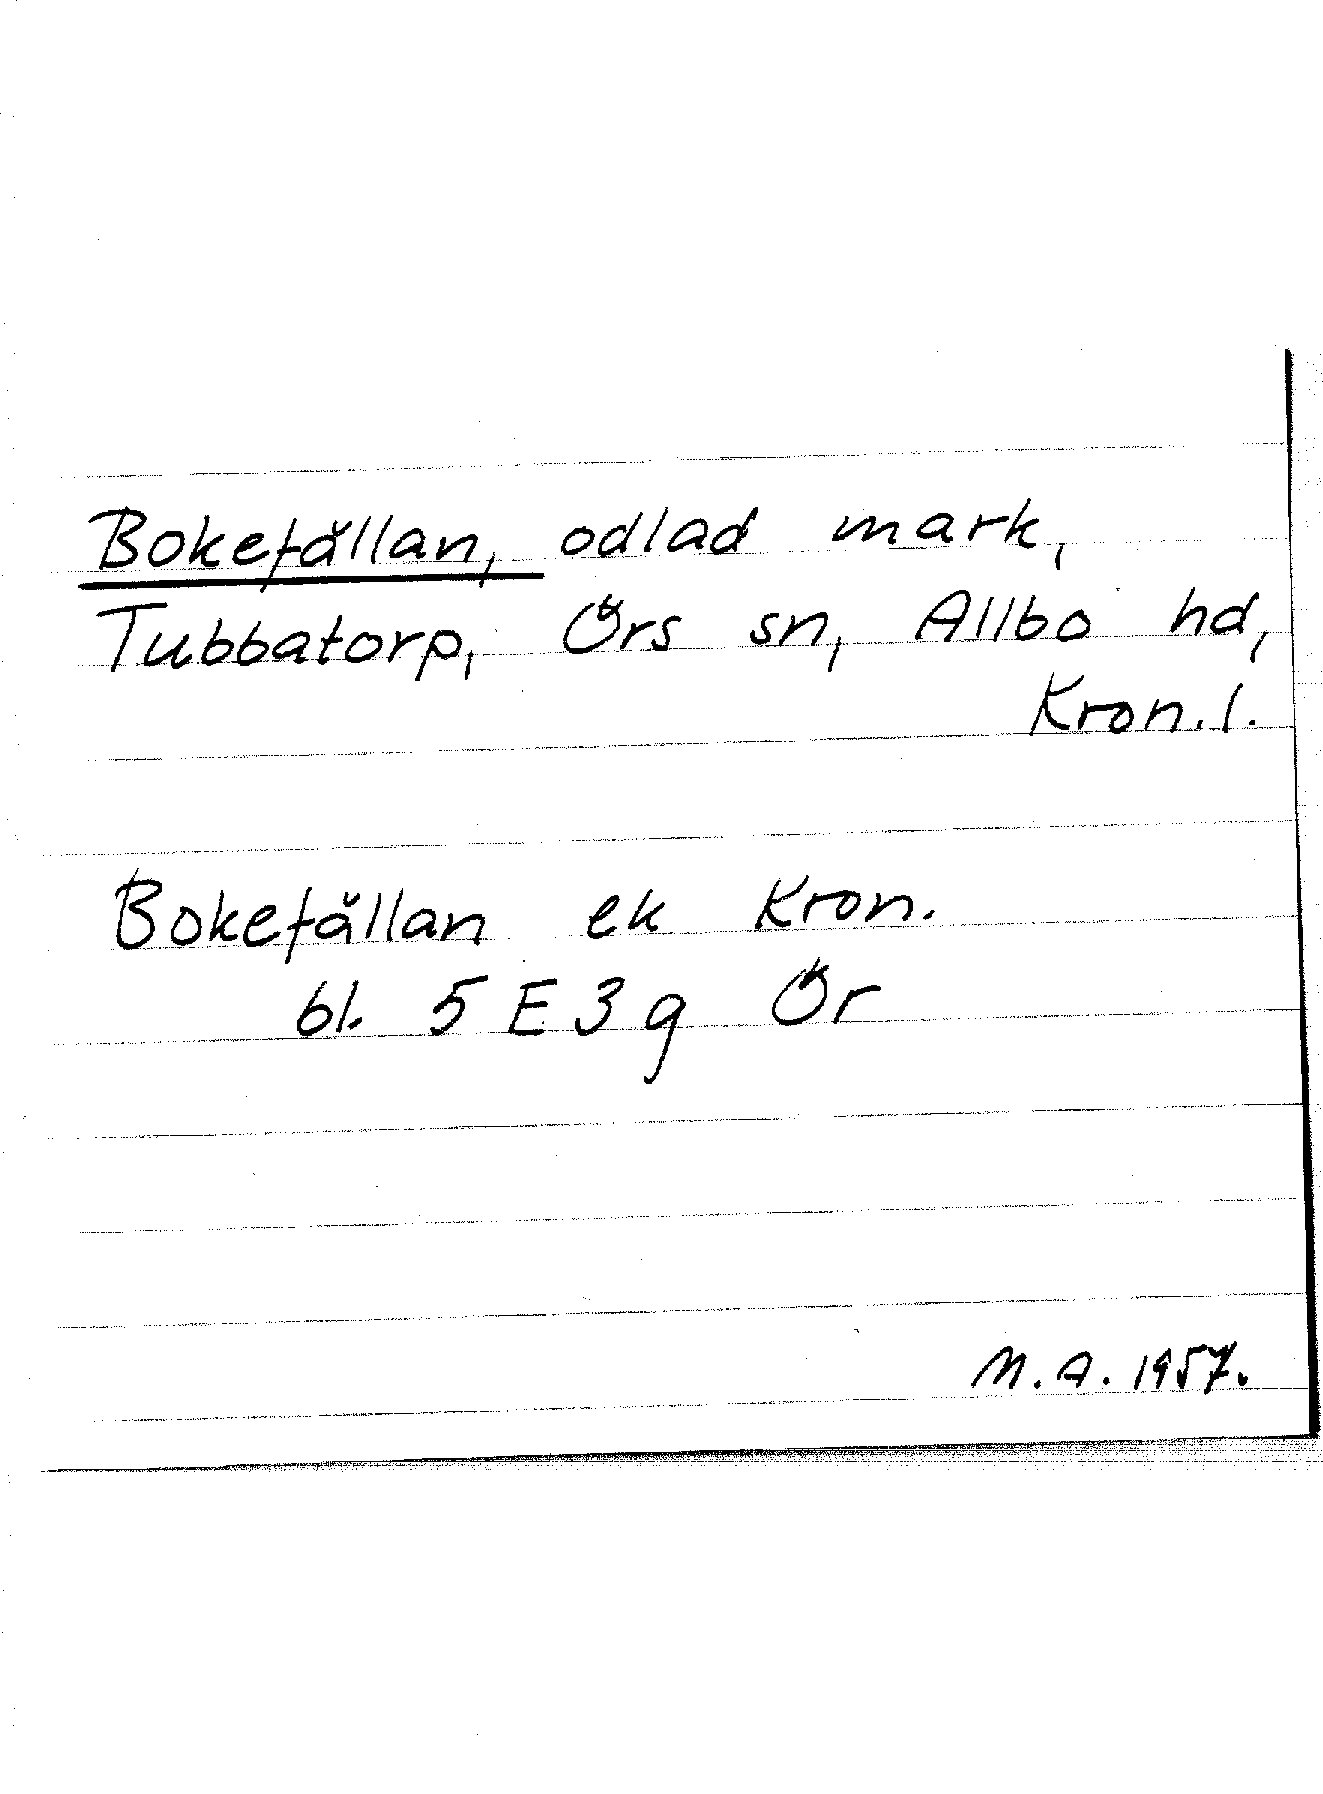 Bokefällan, odlad mark,
Tubbatorp, Örs sn, Allbo hd,
Kron. l.
Bokefällan ek Kron.
bl. 5 E 3 g Ör
M. A. 1957.